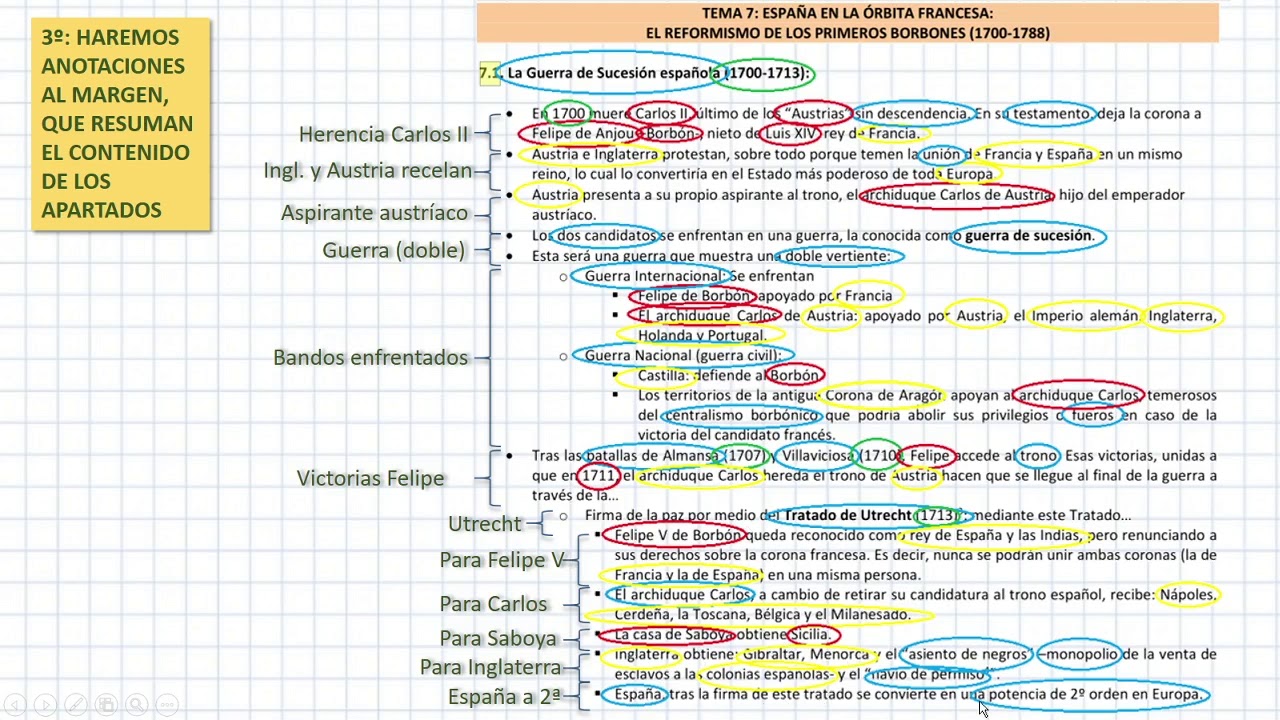 3º: HAREMOS
ANOTACIONES
AL MARGEN,
QUE RESUMAN
EL CONTENIDO
DE LOS
APARTADOS
TEMA 7: ESPAÑA EN LA ÓRBITA FRANCESA:
EL REFORMISMO DE LOS PRIMEROS BORBONES (1700-1788)
7.1. La Guerra de Sucesión española (1700-1713):
Herencia Carlos II
• En 1700 muere Carlos II, último de los “Austrias” sin descendencia. En su testamento, deja la corona a
Felipe de Anjou -Borbón- nieto de Luis XIV, rey de Francia.
Ingl. y Austria recelan
• Austria e Inglaterra protestan, sobre todo porque temen la unión de Francia y España en un mismo
reino, lo cual lo convertiría en el Estado más poderoso de toda Europa.
Aspirante austríaco
• Austria presenta a su propio aspirante al trono, el archiduque Carlos de Austria, hijo del emperador
austríaco.
Guerra (doble)
• Los dos candidatos se enfrentan en una guerra, la conocida como guerra de sucesión.
• Esta será una guerra que muestra una doble vertiente:
Bandos enfrentados
o Guerra Internacional: Se enfrentan
▪ Felipe de Borbón, apoyado por Francia
▪ El archiduque Carlos de Austria: apoyado por Austria, el Imperio alemán, Inglaterra,
Holanda y Portugal.
o Guerra Nacional (guerra civil):
▪ Castilla: defiende al Borbón
▪ Los territorios de la antigua Corona de Aragón apoyan al archiduque Carlos, temerosos
del centralismo borbónico que podría abolir sus privilegios o fueros en caso de la
victoria del candidato francés.
Victorias Felipe
• Tras las batallas de Almansa (1707) y Villaviciosa (1710), Felipe accede al trono Esas victorias, unidas a
que en 1711, el archiduque Carlos hereda el trono de Austria hacen que se llegue al final de la guerra a
través de la...
Utrecht
o Firma de la paz por medio del Tratado de Utrecht (1713); mediante este Tratado...
Para Felipe V
▪ Felipe V de Borbón queda reconocido como rey de España y las Indias, pero renunciando a
sus derechos sobre la corona francesa. Es decir, nunca se podrán unir ambas coronas (la de
Francia y la de España) en una misma persona.
Para Carlos
▪ El archiduque Carlos, a cambio de retirar su candidatura al trono español, recibe: Nápoles,
Cerdeña, la Toscana, Bélgica y el Milanesado.
Para Saboya
▪ La casa de Saboya obtiene Sicilia.
Para Inglaterra
▪ Inglaterra obtiene: Gibraltar, Menorca y el “asiento de negros” –monopolio de la venta de
esclavos a las colonias españolas- y el “navío de permiso”.
España a 2ª
▪ España, tras la firma de este tratado se convierte en una potencia de 2º orden en Europa.